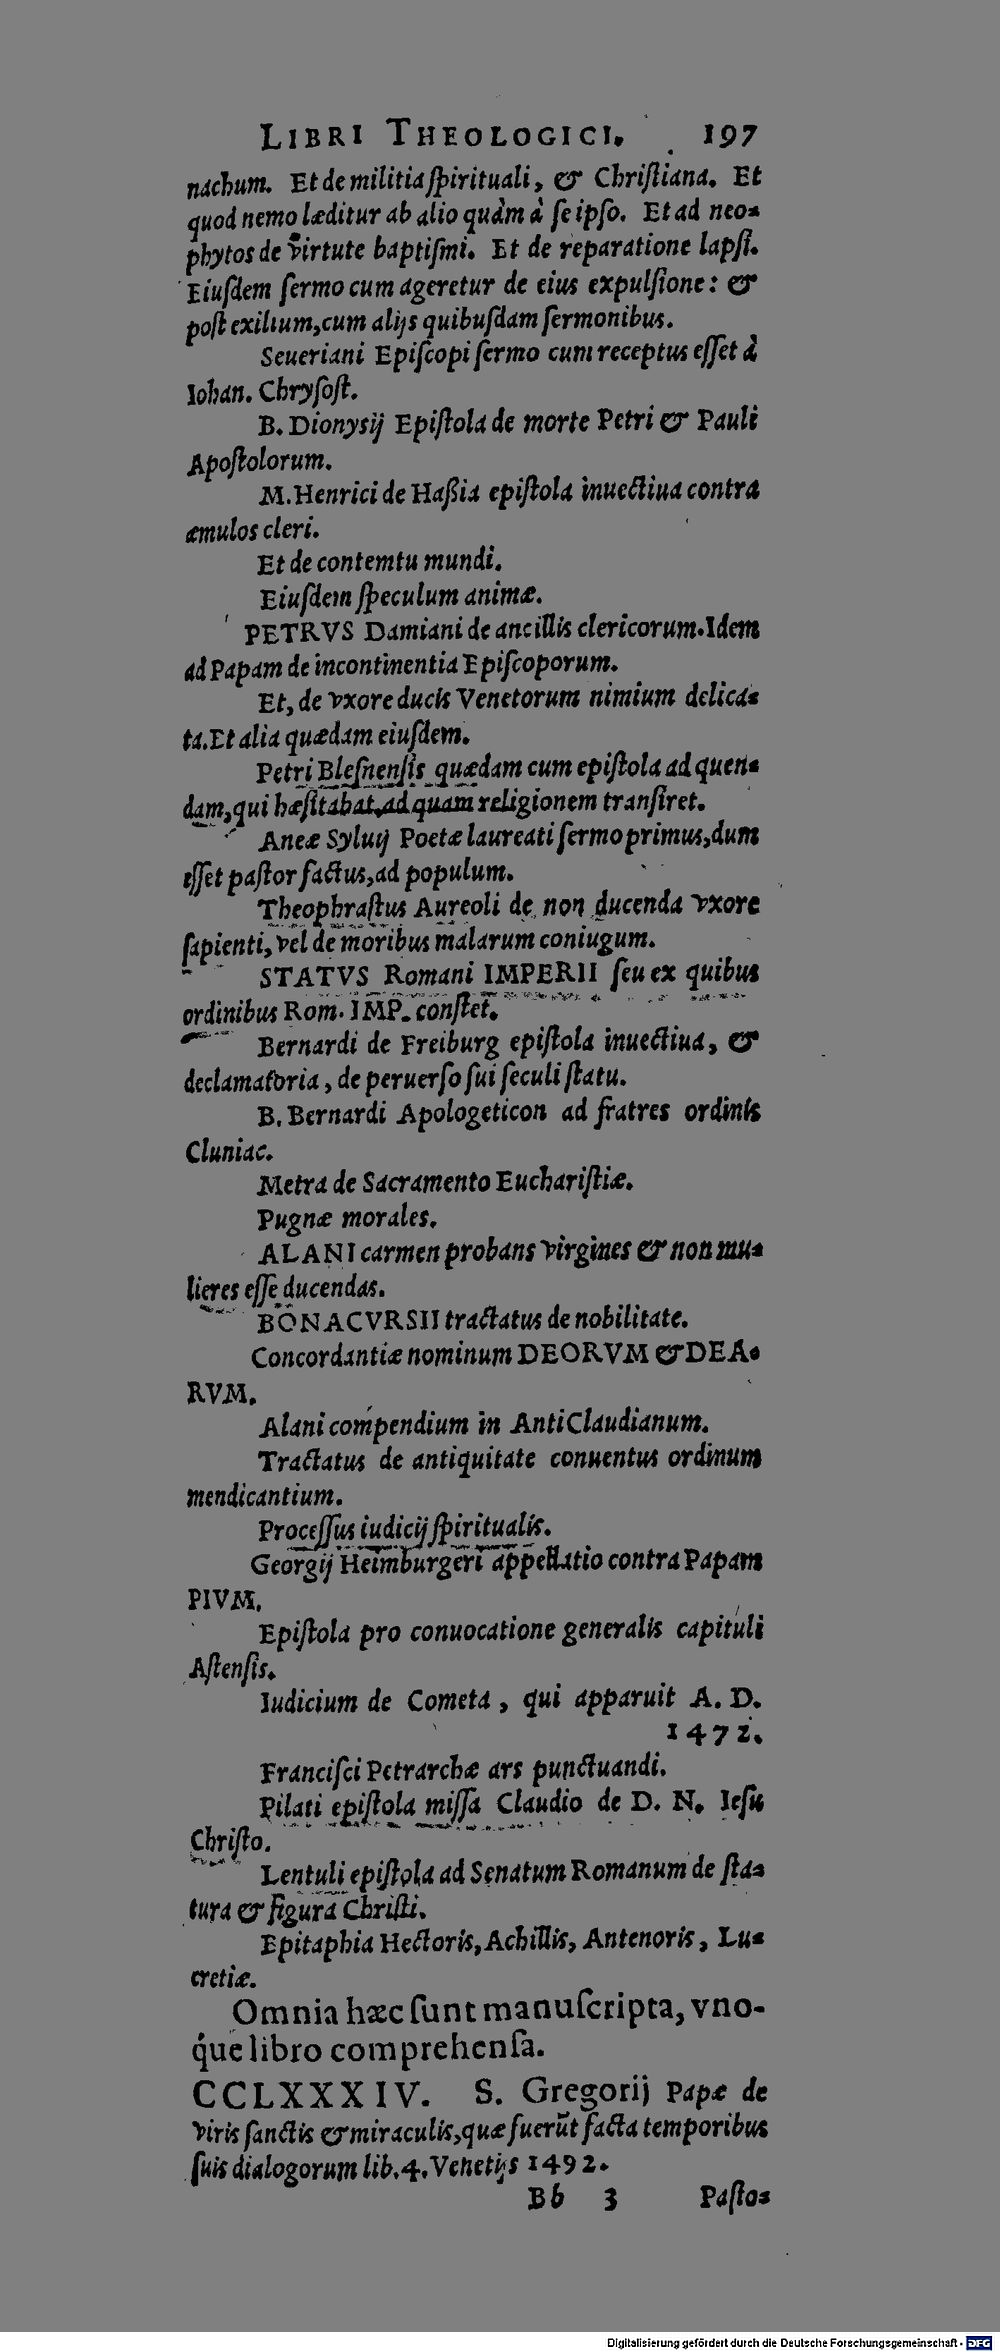 LIBRI THEOLOGICI. 197
nachum. Et de militia ſpirituali, & Chriſtiana. Et
quod nemo læditur ab alio quàm à ſe ipſo. Et ad neo-
phytos de virtute baptiſmi. Et de reparatione lapſi.
Eiuſdem ſermo cum ageretur de eius expulſione: &
poſt exilium, cum alijs quibuſdam ſermonibus.
Seueriani Epiſcopi ſermo cum receptus eſſet à
Iohan. Chryſoſt.
B. Dionysij Epiſtola de morte Petri & Pauli
Apoſtolorum.
M. Henrici de Haßia epiſtola inuectiua contra
æmulos cleri.
Et de contemtu mundi.
Eiuſdem ſpeculum animæ.
PETRVS Damiani de ancillis clericorum. Idem
ad Papam de incontinentia Epiſcoporum.
Et, de vxore ducis Venetorum nimium delica-
ta. Et alia quædam eiuſdem.
Petri Bleſnenſis quædam cum epiſtola ad quen-
dam, qui hæſitabat, ad quam religionem tranſiret.
Aneæ Syluij Poetæ laureati ſermo primus, dum
eſſet paſtor factus, ad populum.
Theophraſtus Aureoli de non ducenda vxore
ſapienti, vel de moribus malarum coniugum.
STATVS Romani IMPERII ſeu ex quibus
ordinibus Rom. IMP. conſtet.
Bernardi de Freiburg epiſtola inuectiua, &
declamatoria, de peruerſo ſui ſeculi ſtatu.
B. Bernardi Apologeticon ad fratres ordinis
Cluniac.
Metra de Sacramento Euchariſtiæ.
Pugnæ morales.
ALANI carmen probans virgines & non mu-
lieres eſſe ducendas.
BONACVRSII tractatus de nobilitate.
Concordantiæ nominum DEORVM & DEA-
RVM.
Alani compendium in AntiClaudianum.
Tractatus de antiquitate conuentus ordinum
mendicantium.
Proceſſus iudicij ſpiritualis.
Georgij Heimburgeri appellatio contra Papam
PIVM.
Epiſtola pro conuocatione generalis capituli
Aſtenſis.
Iudicium de Cometa, qui apparuit A. D.
1472.
Franciſci Petrarchæ ars punctuandi.
Pilati epiſtola miſſa Claudio de D. N. Ieſu
Chriſto.
Lentuli epiſtola ad Senatum Romanum de ſta-
tura & figura Chriſti.
Epitaphia Hectoris, Achillis, Antenoris, Lu-
cretiæ.
Omnia hæc ſunt manuſcripta, vno-
q́ue libro comprehenſa.
CCLXXXIV. S. Gregorij Papæ de
viris ſanctis & miraculis, quæ fuerũt facta temporibus
ſuis dialogorum lib. 4. Venetijs 1492.
Bb 3 Paſto-
Digitalisierung gefördert durch die Deutsche Forschungsgemeinschaft - DFG